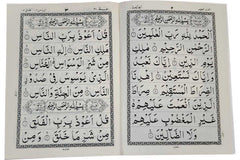 بِسْمِ اللّٰهِ الرَّحْمٰنِ الرَّحِيْمِ
اَلْحَمْدُ لِلّٰهِ رَبِّ الْعٰلَمِيْنَ
الرَّحْمٰنِ الرَّحِيْمِ
مٰلِكِ يَوْمِ الدِّيْنِ اِيَّاكَ
نَعْبُدُ وَاِيَّاكَ نَسْتَعِيْنُ اِهْدِنَا
الصِّرَاطَ الْمُسْتَقِيْمَ صِرَاطَ
الَّذِيْنَ اَنْعَمْتَ عَلَيْهِمْ
غَيْرِ الْمَغْضُوْبِ عَلَيْهِمْ
وَلَا الضَّآلِّيْنَ
بِسْمِ اللّٰهِ الرَّحْمٰنِ الرَّحِيْمِ
قُلْ اَعُوْذُ بِرَبِّ النَّاسِ
مَلِكِ النَّاسِ اِلٰهِ النَّاسِ
مِنْ شَرِّ الْوَسْوَاسِ الْخَنَّاسِ
الَّذِيْ يُوَسْوِسُ فِيْ صُدُوْرِ
النَّاسِ مِنَ الْجِنَّةِ وَالنَّاسِ
بِسْمِ اللّٰهِ الرَّحْمٰنِ الرَّحِيْمِ
قُلْ اَعُوْذُ بِرَبِّ الْفَلَقِ
مِنْ شَرِّ مَا خَلَقَ وَمِنْ